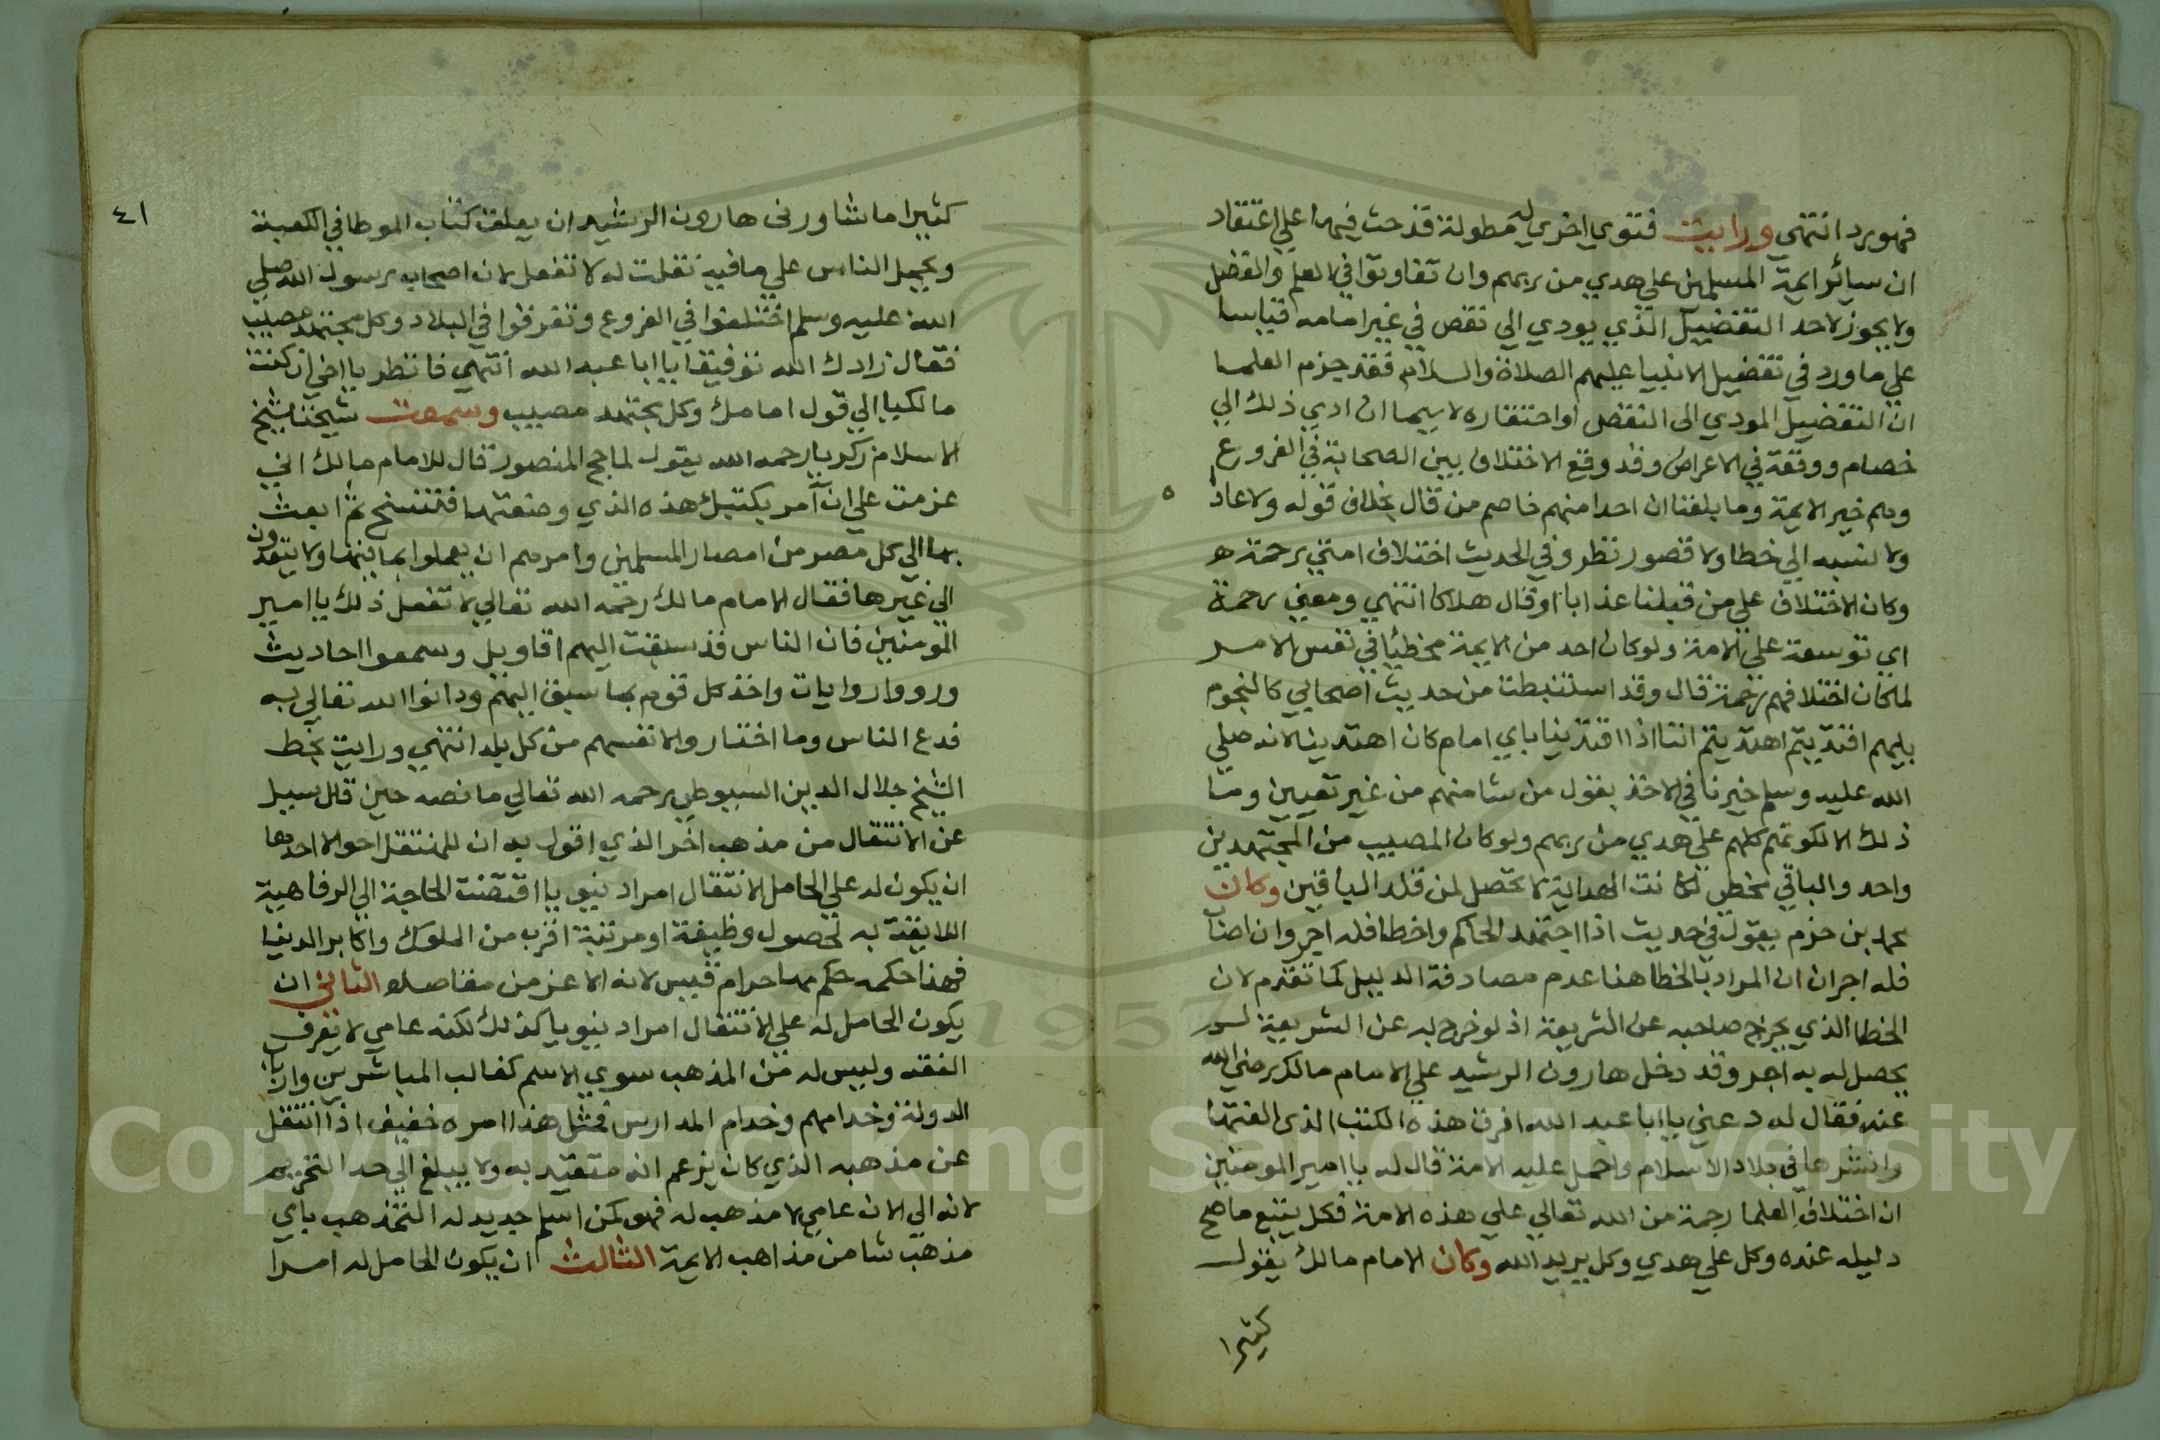 فهو برد انتهي ورايت فتوي اخري له مطولة قد حث فيها علي اعتقاد
ان سائر ايمة المسلمين علي هدي من ربهم وان تفاوتوا في العلم والفضل
ولا يجوز لاحد التفضيل الذي يودي الي نقص في غير امامه قياسا
علي ما ورد في تفضيل الانبيا عليهم الصلاة والسلام فقد جزم العلما
ان التفضيل المودي الي النقص او احتقاره لا سيما ان ادي ذلك الي
خصام ووقعة في الاعراض وقد وقع الاختلاف بين الصحابة في الفروع
وهم خير الايمة وما بلغنا ان احدا منهم خاصم من قال بخلاف قوله ولا عاداه
ولا نسبه الي خطا ولا قصور نظر وفي الحديث اختلاف امتي رحمة
وكان الاختلاف علي من قبلنا عذابا او قال هلاكا انتهي ومعني رحمة
اي توسعة علي الامة ولو كان احد من الايمة مخطيا في نفس الامر
لما كان اختلافهم رحمة قال وقد استنبطت من حديث اصحابي كالنجوم
بايهم اقتديتم اهتديتم اننا اذا اقتدينا باي امام كان اهتدينا لانه صلي
الله عليه وسلم خيرنا في الاخذ بقول من شا منهم من غير تعيين وما
ذلك الا لكونهم كلهم علي هدي من ربهم ولو كان المصيب من المجتهدين
واحد والباقي مخطي لكانت الهداية لا تحصل لمن قلد الباقين وكان
محمد بن حزم يقول في حديث اذا اجتهد الحاكم واخطا فله اجر وان اصاب
فله اجران ان المراد بالخطا هنا عدم مصادفة الدليل كما تقدم لان
الخطا الذي يخرج صاحبه عن الشريعة اذ لو خرج به عن الشريعة لم
يحصل له به اجر وقد دخل هارون الرشيد علي الامام مالك رضي الله
عنه فقال له دعني يا ابا عبد الله افرق هذه الكتب الذي الفتها
وانشرها في بلاد الاسلام واحمل عليه الامة قال له يا امير المومنين
ان اختلاف العلما رحمة من الله تعالي علي هذه الامة فكل يتبع ما صح
دليله عنده وكل علي هدي وكل يريد الله وكان الامام مالك يقول
كثيرا
٤١
كثيرا ما شاورني هارون الرشيد ان يعلق كتاب الموطا في الكعبة
ويحمل الناس علي ما فيه فقلت له لا تفعل لان اصحاب رسول الله صلي
الله عليه وسلم اختلفوا في الفروع وتفرقوا في البلاد وكل مجتهد مصيب
فقال زادك الله توفيقا يا ابا عبد الله انتهي فانظر يا اخي ان كنت
مالكيا الي قول امامك وكل مجتهد مصيب وسمعت شيخنا شيخ
الاسلام زكريا رحمه الله يقول لما حج المنصور قال للامام مالك اني
عزمت علي ان آمر بكتبك هذه الذي وضعتها فتنسخ ثم ابعث
بها الي كل مصر من امصار المسلمين وامرهم ان يعملوا بما فيها ولا يتعدون
الي غيرها فقال الامام مالك رحمه الله تعالي لا تفعل ذلك يا امير
المومنين فان الناس قد سبقت اليهم اقاويل وسمعوا احاديث
ورووا روايات واخذ كل قوم بما سبق اليهم ودانوا الله تعالي به
فدع الناس وما اختاروا لانفسهم من كل بلد انتهي ورايت بخط
الشيخ جلال الدين السيوطي رحمه الله تعالي ما نصه حين سيل
عن الانتقال من مذهب اخر الذي اقول به ان للمنتقل احوالا احدها
ان يكون له علي الحامل الانتقال امرا دنيويا اقتضت الحاجة الي الرفاهية
اللايقة به لحصول وظيفة او مرتبة اقرب من الملوك واكابر الدنيا
فهذا حكمه حكم مهاجر ام قيس لانه الاعز من مقاصده الثاني ان
يكون الحامل له علي الانتقال امرا دنيويا كذلك لكنه عامي لا يعرف
الفقه وليس له من المذهب سوي الاسم كغالب المباشرين وارباب
الدولة وخدامهم وخدام المدارس فمثل هذا امره خفيف اذا انتقل
عن مذهبه الذي كان يزعم انه متقيد به ولا يبلغ الي حد التحريم
لانه الي الان عامي لا مذهب له فهو كمن اسلم جديد له التمذهب باي
مذهب شا من مذاهب الايمة الثالث ان يكون الحامل له امرا
Copyright © King Saud University
1957